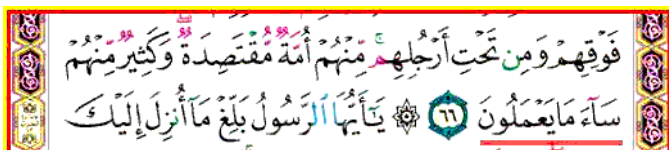 فَوْقِهِمْ وَمِن تَحْتِ أَرْجُلِهِم ۚ مِّنْهُمْ أُمَّةٌ مُّقْتَصِدَةٌ ۖ وَكَثِيرٌ مِّنْهُمْ
سَآءَ مَا يَعْمَلُونَ ٦٦ ۞ يَـٰٓأَيُّهَا ٱلرَّسُولُ بَلِّغْ مَآ أُنزِلَ إِلَيْكَ